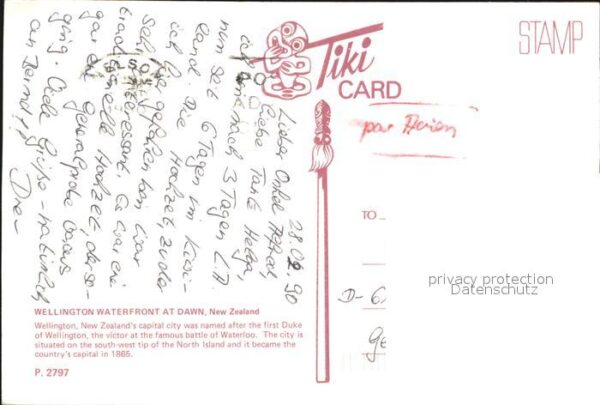 Tiki
CARD
STAMP
par Avion
TO
privacy protection
Datenschutz
D-6
Ge
28.02.90
Lieber Onkel Alfred,
liebe Tante Helga,
nach 3 Tagen L.A.
nun seit 6 Tagen im Kiwi-
land. Die Hochzeit, zu der
ich gefahren bin, war
sehr interessant. Es war
traditionelle Hochzeit, der so-
gar Generalprobe voraus
ging. Viele Grüße – natürlich
an
WELLINGTON WATERFRONT AT DAWN, New Zealand
Wellington, New Zealand's capital city was named after the first Duke
of Wellington, the victor at the famous battle of Waterloo. The city is
situated on the south-west tip of the North Island and it became the
country's capital in 1865.
P. 2797